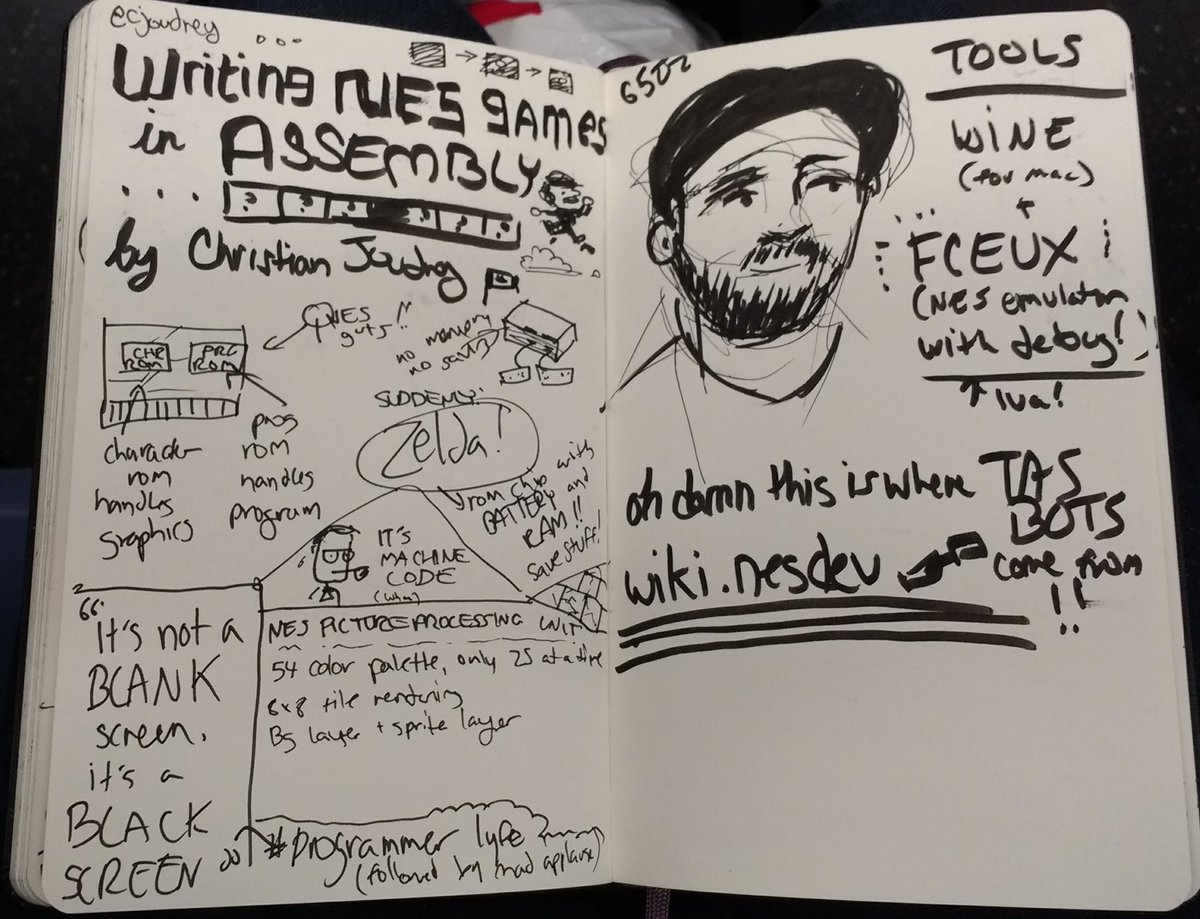 ecjoudrey
Writing NES games
in ASSEMBLY
? ? ? ? ? ?
by Christian Joudrey
NES
guts!!
no memory
no saving
CHR
ROM
PRG
ROM
character
rom
handles
graphics
prog
rom
handles
program
SUDDENLY:
Zelda!
rom chip with
BATTERY and
RAM!!
save stuff!
IT'S
MACHINE
CODE
NES PICTURE PROCESSING UNIT
54 color palette, only 25 at a time
8x8 tile rendering
BG layer + sprite layer
"It's not a
BLANK
screen.
it's a
BLACK
SCREEN"
#programmer lyfe
(followed by mad applause)
6502
TOOLS
WINE
(for mac)
+
FCEUX
(NES emulator
with debug!)
lua!
oh damn this is where TAS
BOTS
come from
!!
wiki.nesdev